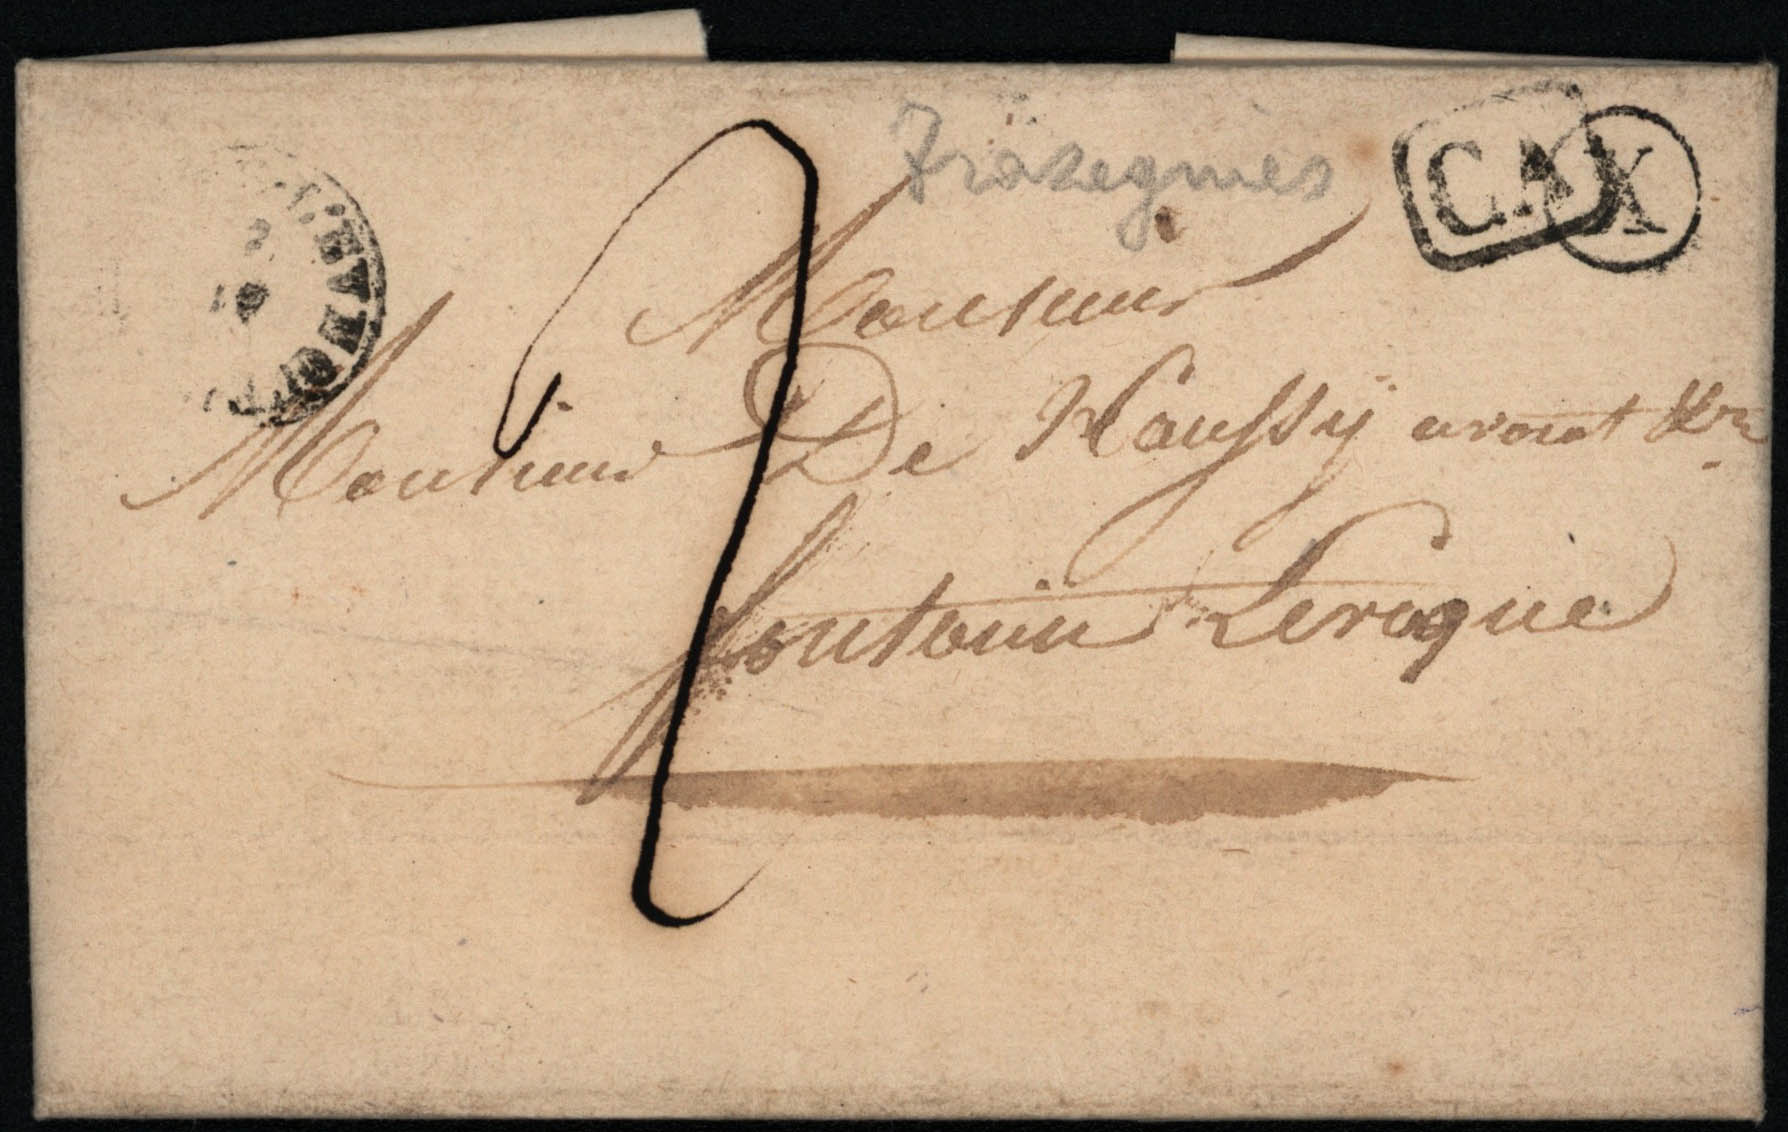 Trazegnies
CA X
2
Monsieur
Monsieur De Haussÿ avocat &ra
fontaine Leveque